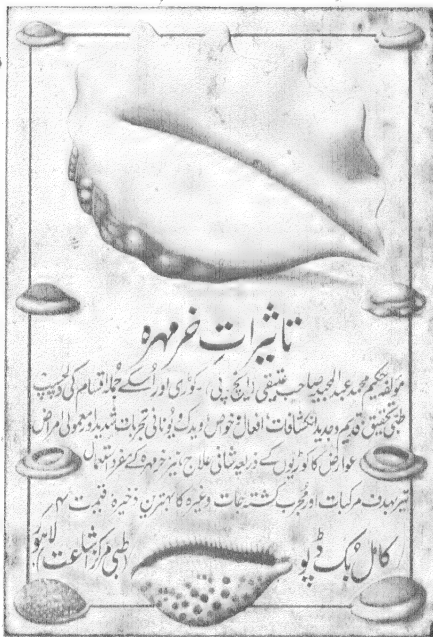 تاثیراتِ خرمہرہ
مولفہ حکیم محمد عبدالمجید صاحب عتیقی (ایچ پی) ۔ کوڑی اور اُسکے جُملہ اقسام کی دلچسپ
طبّی تحقیق قدیم و جدید انکشافات افعال و خواص ویدک یُونانی تجربات شدید و معمولی امراض
عوارض کا کوڑیوں کے ذریعہ شافی علاج نیز خرمہرہ کے مفرد استعمال
تیر بہدف مرکبات اور مُجرب کشتہ جات وغیرہ کا بہترین ذخیرہ قیمت ۴؍
کامل بُک ڈپو (طبّی مرکز اشاعت) لاہور